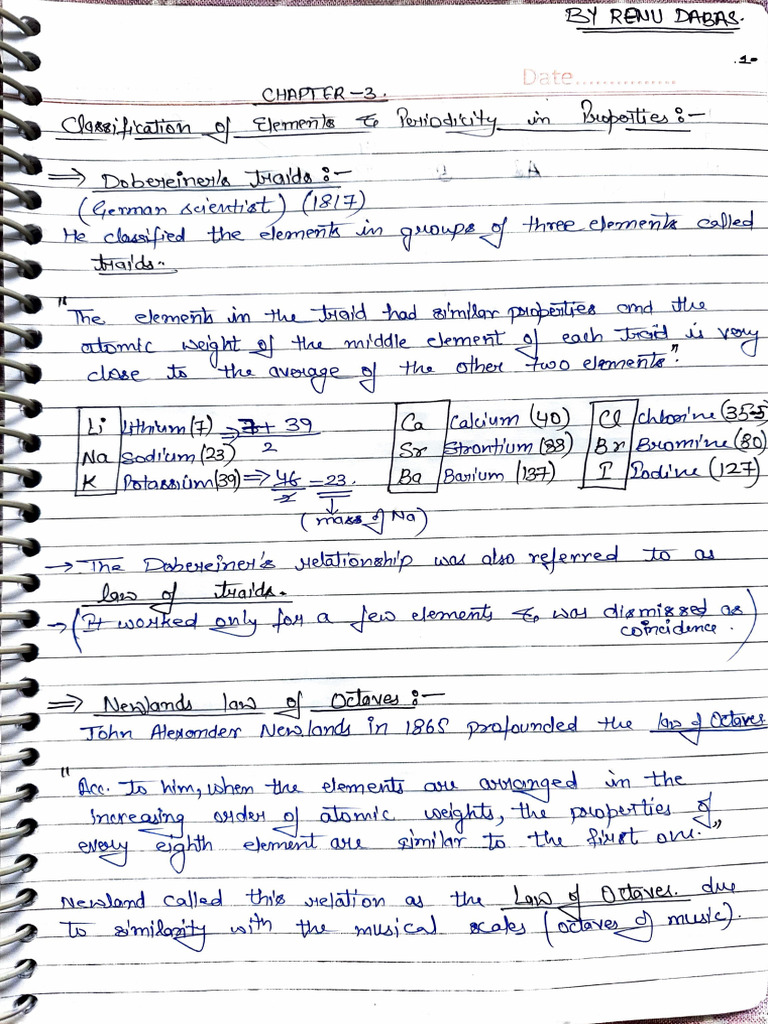 BY RENU DABAS.
1.
Date...............
CHAPTER-3.
Classification of Elements & Periodicity in Properties:-
⇒ Dobereiner's traids:-
(German scientist) (1817)
He classified the elements in groups of three elements called
traids.
"The elements in the traid had similar properties and the
atomic weight of the middle element of each traid is very
close to the average of the other two elements".
Li Lithium(7) ⇒ 7+39 Ca Calcium (40) Cl Chlorine (35.5)
Na Sodium(23) 2 Sr Strontium (88) Br Bromine (80)
K Potassium(39) ⇒ 46/2 = 23. Ba Barium (137) I Iodine (127)
(mass of Na)
→ The Dobereiner's relationship was also referred to as
law of traids.
→ (It worked only for a few elements & was dismissed as
coincidence.)
⇒ Newlands law of Octaves:-
John Alexander Newlands in 1865 profounded the law of Octaves.
"Acc. To him, when the elements are arranged in the
increasing order of atomic weights, the properties of
every eighth element are similar to the first one."
Newland called this relation as the Law of Octaves. due
to similarity with the musical scales (octaves of music).